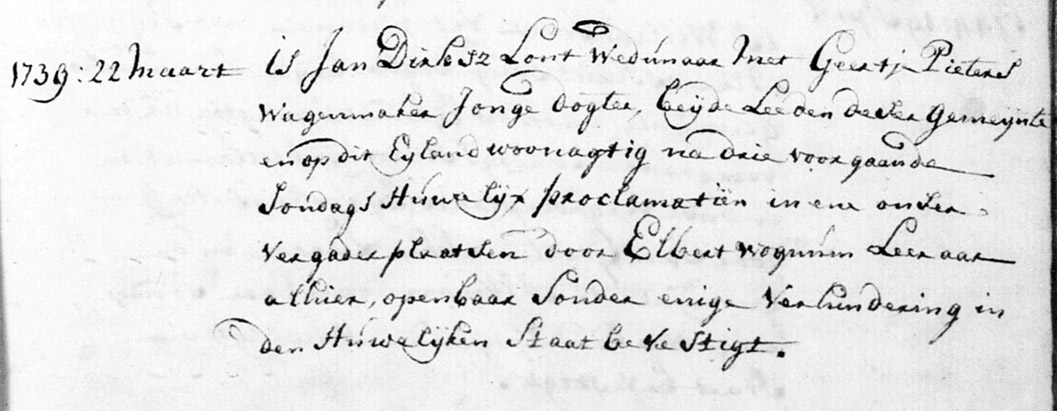 1739: 22 Maart is Jan Dirksz Lont Wedunaar Met Geertje Pieters
Wagenmaker Jonge dogter, beÿde Leeden deser Gemeÿnte
en op dit Eÿland woonagtig na drie voorgaande
Sondags Huwelÿx proclamatiën in ene onser
vergaderplaatsen door Elbert Wognum Leeraar
alhier, openbaar Sonder enige verhindering in
den Huwelÿken Staat bevestigt.